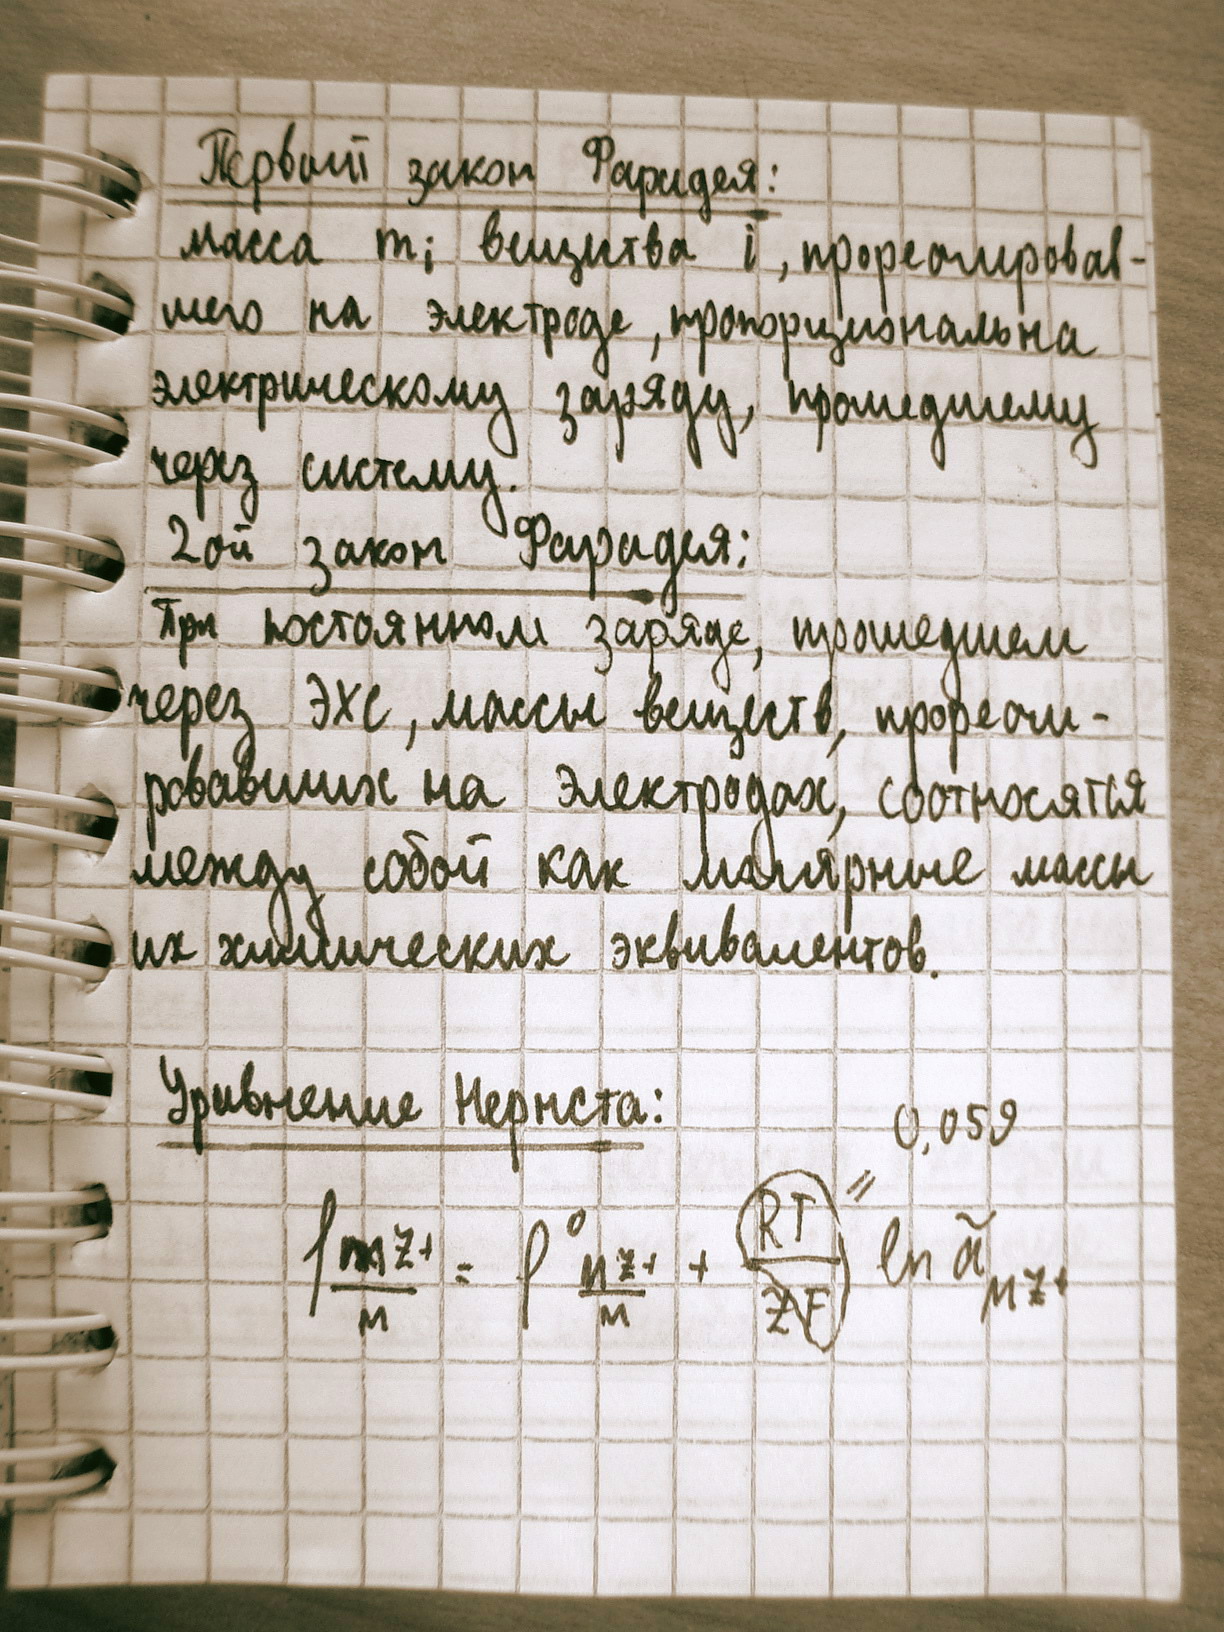 Первый закон Фарадея:
масса mᵢ вещества i, прореагировав-
шего на электроде, пропорциональна
электрическому заряду, прошедшему
через систему.
2ой закон Фарадея:
При постоянном заряде, прошедшем
через ЭХС, массы веществ, прореаги-
ровавших на электродах, соотносятся
между собой как молярные массы
их химических эквивалентов.
Уравнение Нернста:
0,059
φ mᶻ⁺/м = φ⁰ мᶻ⁺/м + RT/zF = ln ã мᶻ⁺